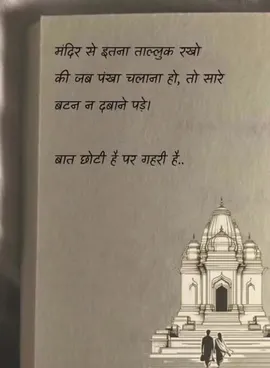 मंदिर से इतना ताल्लुक रखो
की जब पंखा चलाना हो, तो सारे
बटन न दबाने पड़े।
बात छोटी है पर गहरी है..